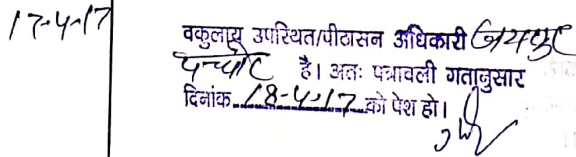 17-4-17
वकुलाय उपस्थित/पीठासन अधिकारी जयपुर
है। अतः पत्रावली गतानुसार
दिनांक 18-4-17 को पेश हो।